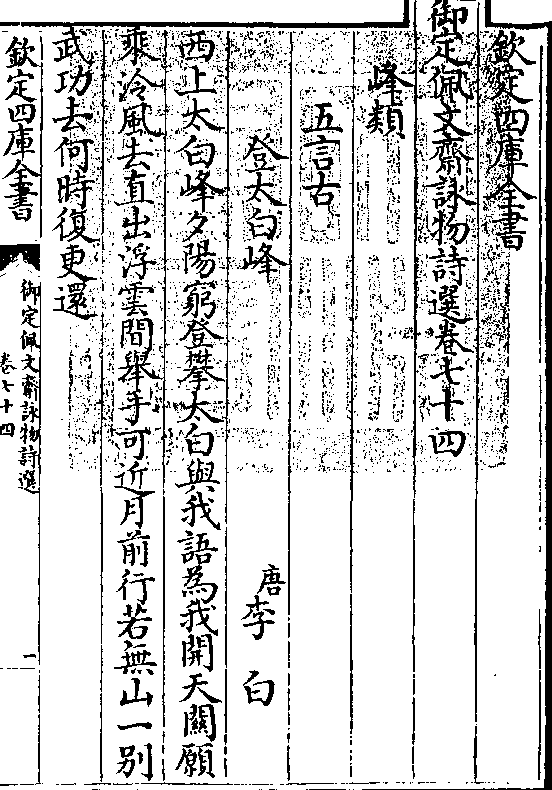 欽定四庫全書
御定佩文齋詠物詩選卷七十四
峰類
五言古
登太白峰
唐李白
西上太白峰夕陽窮登攀太白與我語為我開天關願
乘泠風去直出浮雲間舉手可近月前行若無山一別
武功去何時復更還
欽定四庫全書
御定佩文齋詠物詩選
卷七十四
一